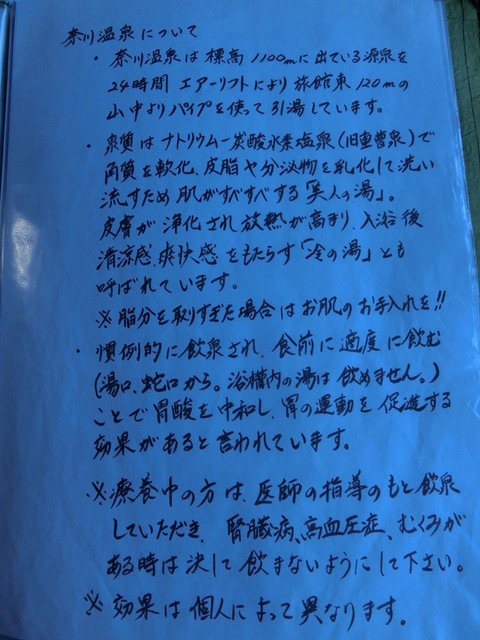 奈川温泉について
・奈川温泉は標高1100mに出ている源泉を
24時間エアーリフトにより旅館東120mの
山中よりパイプを使って引湯しています。
・泉質はナトリウムー炭酸水素塩泉(旧重曹泉)で
角質を軟化、皮脂や分泌物を乳化して洗い
流すため肌がすべすべする「美人の湯」。
皮膚が浄化され放熱が高まり、入浴後
清涼感、爽快感をもたらす「冷の湯」とも
呼ばれています。
※脂分を取りすぎた場合はお肌のお手入れを!!
・慣例的に飲泉され、食前に適度に飲む
(湯口、蛇口から。浴槽内の湯は飲めません。)
ことで胃酸を中和し、胃の運動を促進する
効果があると言われています。
※療養中の方は、医師の指導のもと飲泉
していただき、腎臓病、高血圧症、むくみが
ある時は決して飲まないようにして下さい。
※効果は個人によって異なります。